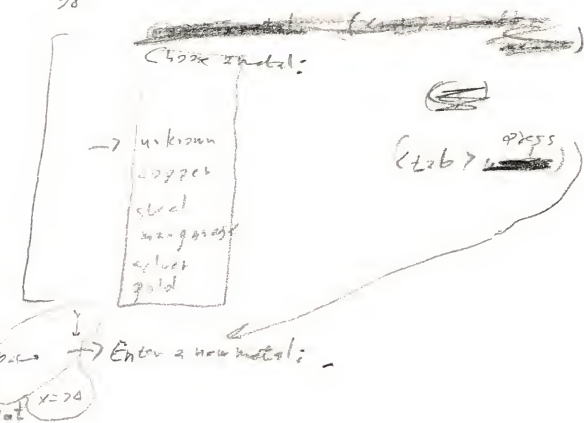 Choose a metal:
→ unknown
copper
steel
manganese
silver
gold
(<tab> press)
→ Enter a new metal: _
x=24